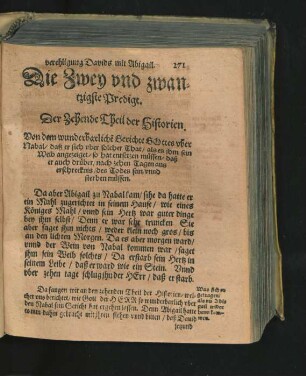 verehligung Davids mit Abigail. 271
Die Zwey vnd zwan-
tzigste Predigt.
Der Zehende Theil der Historien.
Von dem wunderbarlichē Gerichte Gottes vber
Nabal, daß er sich vber solcher That, als es ihm sein
Weib angezeiget, so hat entsetzen müssen, daß
er auch drüber, nach zehen Tagen aus
erschrecknis des Todes sein vnnd
sterben müssen.
Da aber Abigail zu Nabal kam, sihe da hatte er
ein Mahl zugerichtet in seinem Hause, wie eines
Königes Mahl, vnnd sein Hertz war guter dinge
bey ihm selbst, Denn er war sehr truncken Sie
aber saget ihm nichts, weder klein noch gros, bis
an den lichten Morgen. Da es aber morgen ward,
vnnd der Wein von Nabal kommen war, saget
ihm sein Weib solches, Da erstarb sein Hertz in
seinem Leibe, daß er ward wie ein Stein. Vnnd
vber zehen tage schlug ihn der HErr, daß er starb.
Da fangen wir an den zehenden Theil der Historien, wel-
cher vns berichtet, wie Gott der HERR so wunderbarlich vber
den Nabal sein Gericht hat ergehen lassen. Denn Abigail hatte
es nun dahin gebracht mit ihren flehen vnnd bitten, daß David
jegund
Was sich
zugetragen,
als nu Abi-
gail wider